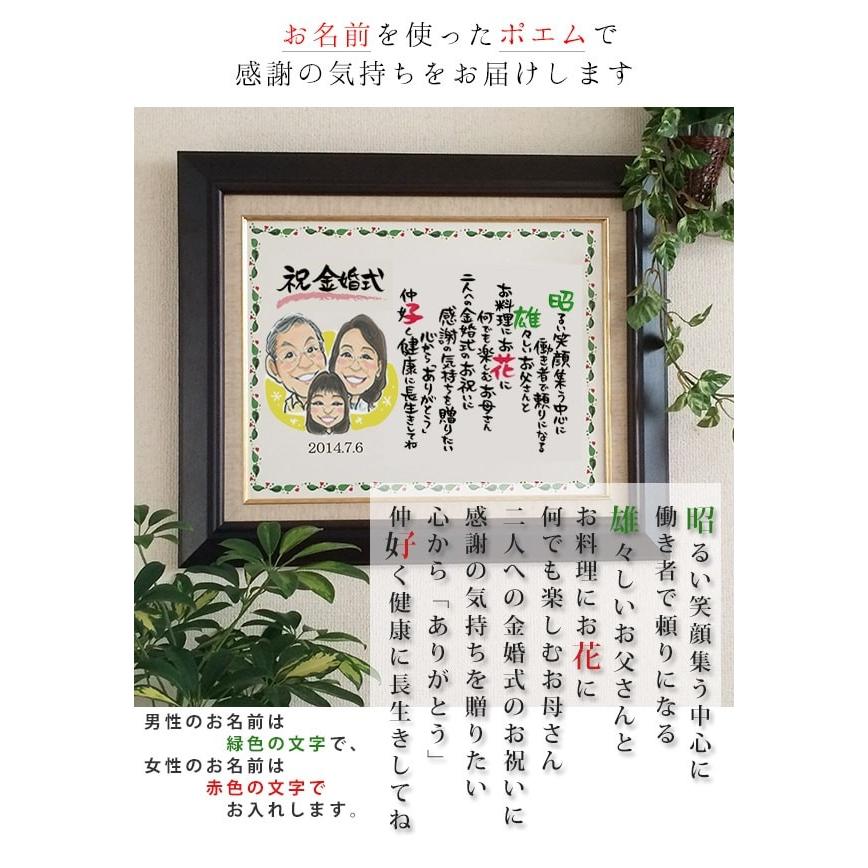 お名前を使ったポエムで
感謝の気持ちをお届けします
祝 金婚式
2014.7.6
昭るい笑顔集う中心に
働き者で頼りになる
雄々しいお父さんと
お料理にお花に
何でも楽しむお母さん
二人への金婚式のお祝いに
感謝の気持ちを贈りたい
心からありがとう」
仲好く健康に長生きしてね
昭るい笑顔集う中心に
働き者で頼りになる
雄々しいお父さんと
お料理にお花に
何でも楽しむお母さん
二人への金婚式のお祝いに
感謝の気持ちを贈りたい
心から「ありがとう」
仲好く健康に長生きしてね
男性のお名前は
緑色の文字で、
女性のお名前は
赤色の文字で
お入れします。